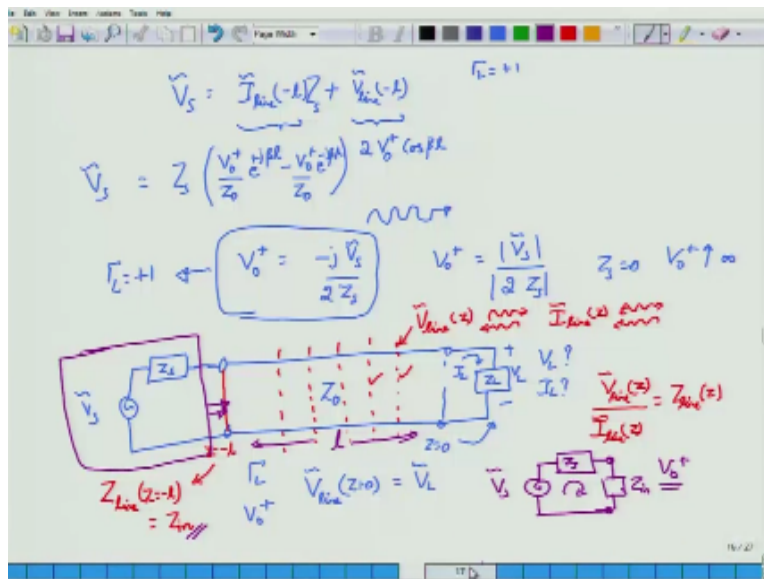 Edit View Insert Actions Tools Help
Page Width
B I
Γ_L = +1
Ṽ_S = Ĩ_line(-l)Z_s + Ṽ_line(-l)
Ṽ_S = Z_s (V_0^+/Z_0 e^{+jβl} - V_0^+/Z_0 e^{-jβl}) 2 V_0^+ cos βl
Γ_L = +1 ⇐ V_0^+ = -j Ṽ_s / 2 Z_s V_0^+ = |Ṽ_s| / |2 Z_s| Z_s = 0 V_0^+ ↑ ∞
Ṽ_line(z) Ĩ_line(z)
Z_s Z_0 I_L Z_L + V_L - V_L ?
Ṽ_s I_L ?
Ṽ_line(z) / Ĩ_line(z) = Z_line(z)
z=-l l z=0
Z_line(z=-l) = Z_in
Γ_L Ṽ_line(z=0) = Ṽ_L
V_0^+
Ṽ_s Z_s Z_in V_0^+
17